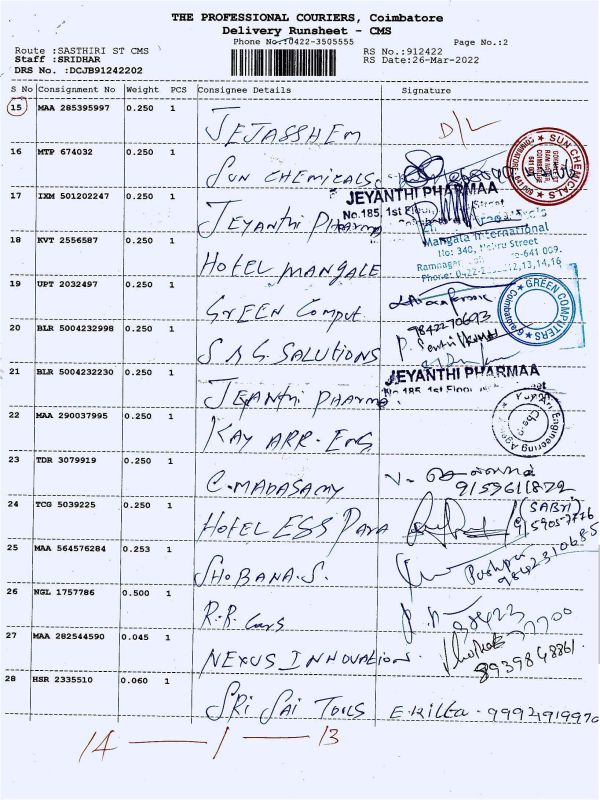 THE PROFESSIONAL COURIERS, Coimbatore
Delivery Runsheet - CMS
Phone No:0422-3505555 Page No.:2
Route :SASTHIRI ST CMS RS No.:912422
Staff :SRIDHAR RS Date:26-Mar-2022
DRS No. :DCJB91242202
S No Consignment No Weight PCS Consignee Details Signature
15 MAA 285395997 0.250 1 JEJASSHEM D/L
16 MTP 674032 0.250 1 SUN CHEMICALS
SUN CHEMICALS
17 IXM 501202247 0.250 1 Jeyanthi Pharma
JEYANTHI PHARMAA
No.185, 1st Floor, Street
18 KVT 2556587 0.250 1 HOTEL MANGALE
Mangala International
No: 340, Nehru Street
Ramnagar -641 009.
Phone: 0422-2 12,13,14,16
19 UPT 2032497 0.250 1 GREEN Comput.
9842270693
GREEN COMPUTERS
Coimbatore
20 BLR 5004232998 0.250 1 S A G SALUTIONS P. Senthilkumar
21 BLR 5004232230 0.250 1 Jeyanthi Pharma.
JEYANTHI PHARMAA
No.185, 1st Floor, Street
22 MAA 290037995 0.250 1 KAY ARR. ENG
Engineering Agency
23 TDR 3079919 0.250 1 C. MADASAMY V-
9159611872
24 TCG 5039225 0.250 1 HOTEL ESS PARA (SABRI)
9159057776
25 MAA 564576284 0.253 1 SHOBANA.S. Pushpa
9842310685
26 NGL 1757786 0.500 1 R.R. Cars
98423 77700
27 MAA 282544590 0.045 1 NEXUS INNOVATION.
8939848861.
28 HSR 2335510 0.060 1 SRI SAI TOOLS E. Kilta - 9994919970
14 — 1 — 13